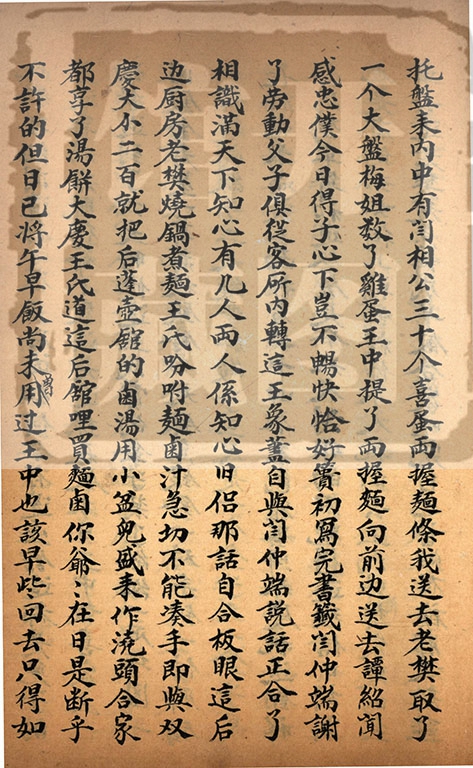 托盤来內中有闫相公三十个喜蛋両握麵條我送去老樊取了
一个大盤梅姐敎了雞蛋王中提了両握麵向前边送去譚紹聞
感忠僕今日得子心下豈不暢快恰好簣初冩完書籤闫仲端謝
了劳動父子俱從客所內轉這王象藎自與闫仲端說話正合了
相識滿天下知心有几人両人係知心旧侣那話自合板眼這后
边厨房老樊燒鍋煮麵王氏吩咐麵鹵汁急切不能凑手即與双
慶大小二百就把后蓬壺舘的鹵湯用小盆兒盛来作澆頭合家
都享了湯餅大慶王氏道這后舘哩買麵鹵你爺〻在日是断乎
不許的但日已將午早飯尚未曾用过王中也該早些回去只得如